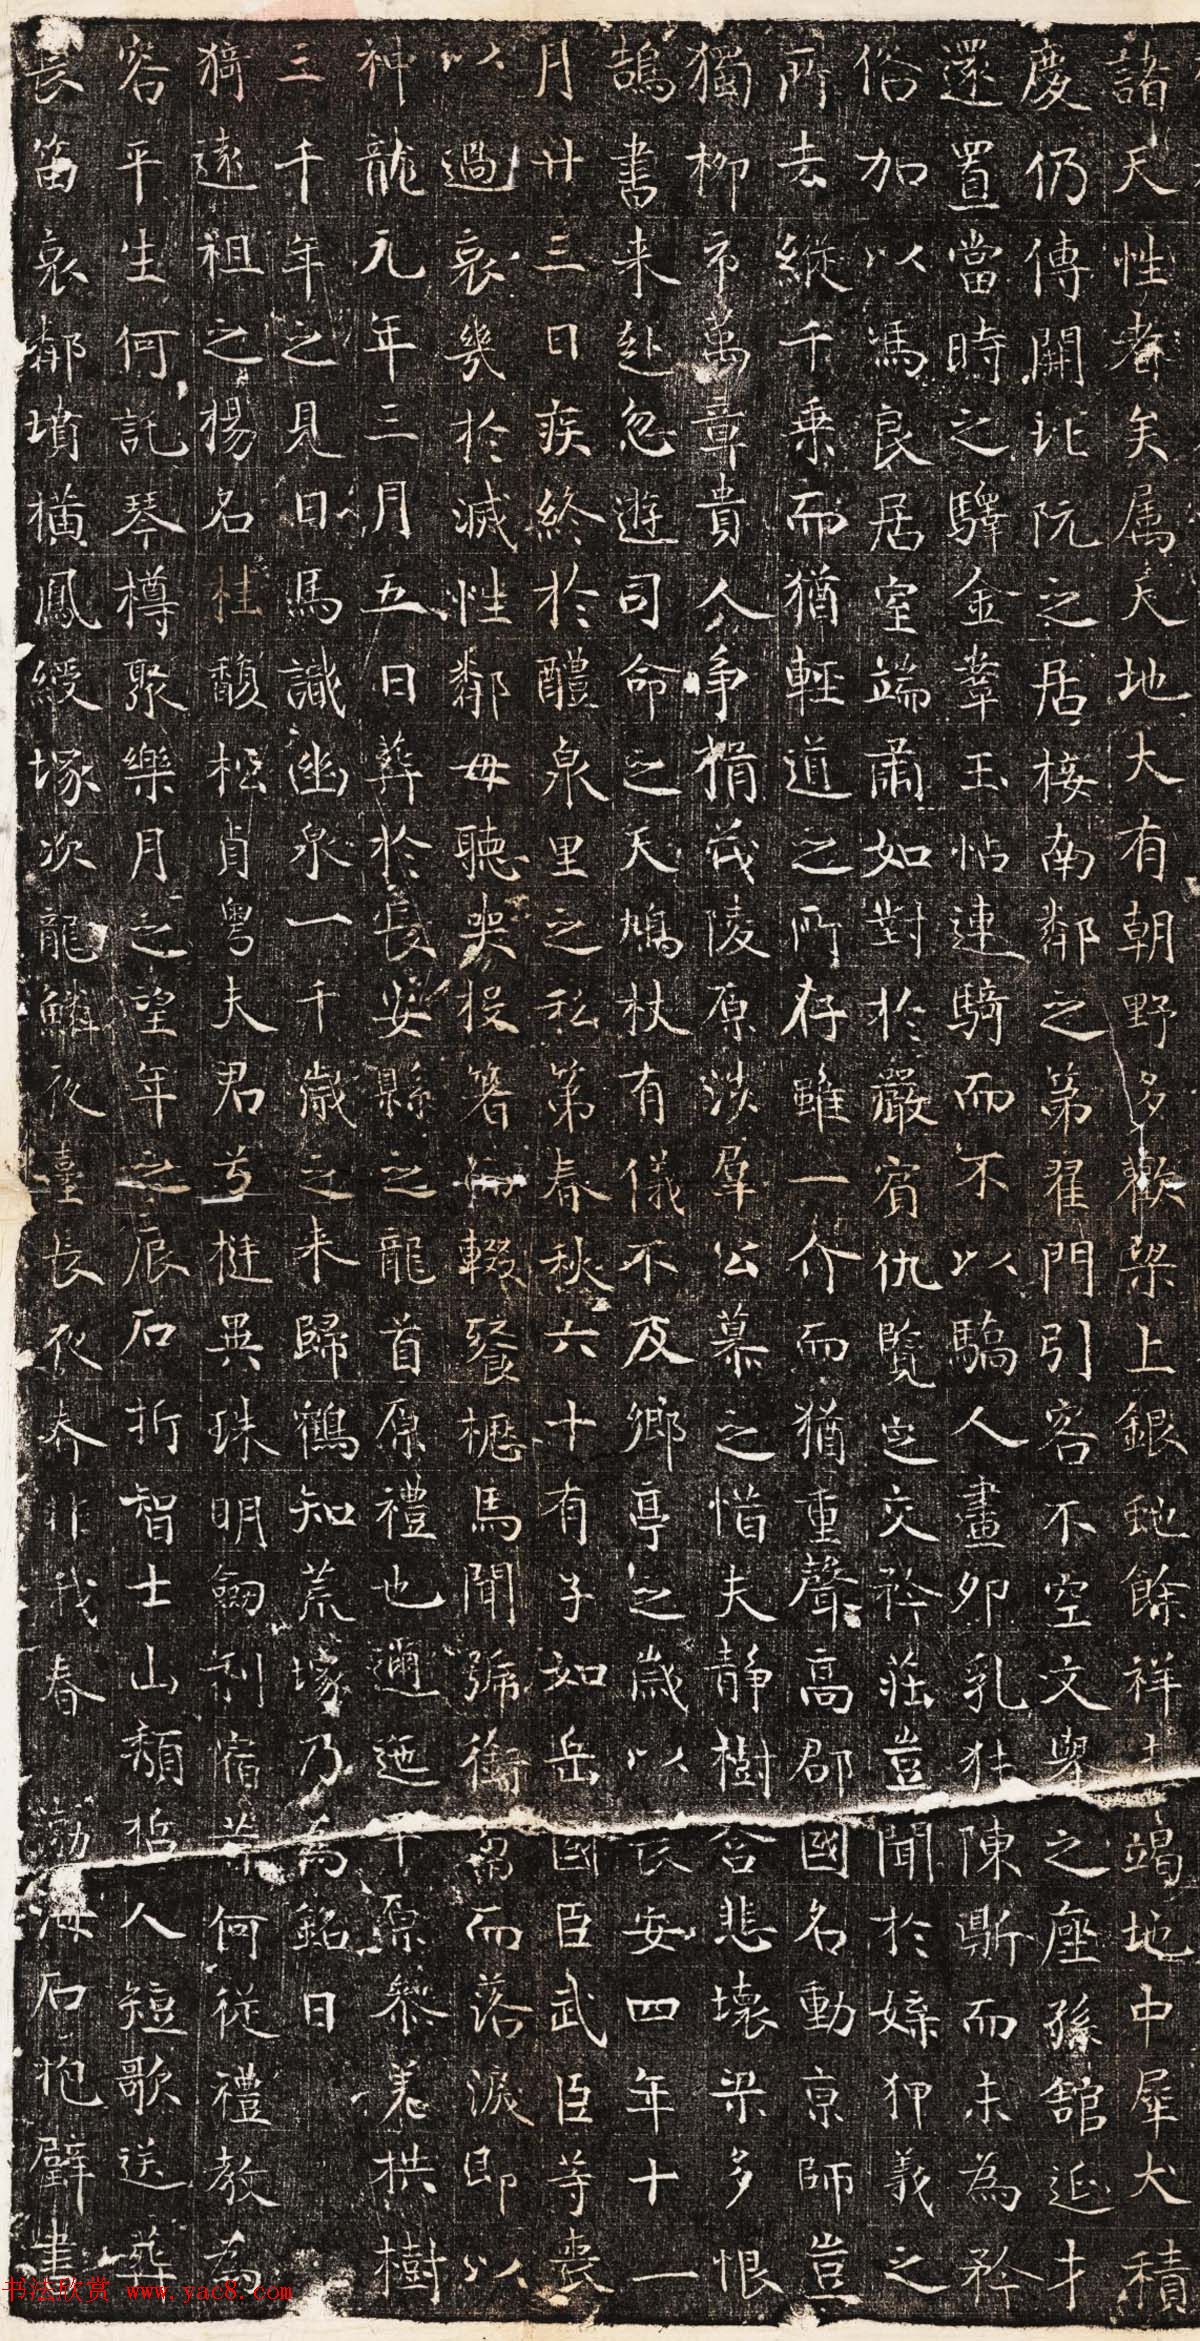 諸天性者矣属天地大有朝野多歡梁上銀虵餘祥未竭地中犀犬積
慶仍傳闢北阮之居接南鄰之第翟門引客不空文舉之座孫舘延才
還置當時之驛金鞌玉怗連騎而不以驕人畫卯乳陳鼎而未為矜
俗加以馮良居室端肅如對於嚴賓仇覽定交矜莊豈聞於媟狎義之
所去縱千乗而猶輕道之所存雖一介而猶重聲高郡國名動京師豈
獨柳市萬章貴人争揖茂陵原涉羣公慕之惜夫静樹含悲壞梁多恨
鵠書来赴忽遊司命之天鳩杖有儀不及鄉亭之歲以長安四年十一
月廿三日疾終於醴泉里之私第春秋六十有子如岳國臣武臣等喪
以過哀幾於滅性鄰母聽哭投箸而輟餐櫪馬聞號銜蒭而落淚即以
神龍元年三月五日葬於長安縣之龍首原禮也邐迤平原參差拱樹
三千年之見日馬識幽泉一千歲之来歸鶴知荒塚乃為銘曰
猗遠祖之揚名桂馥松貞粤夫君兮挺異珠明劒利宿昔何從禮教為
容平生何託琴樽聚樂月之望年之辰石折智士山頹哲人短歌送葬
長笛哀鄰墳橫鳳綬塚次龍鱗夜臺長夜春非我春渤海石抱壁書
书法欣赏 www.yac8.com